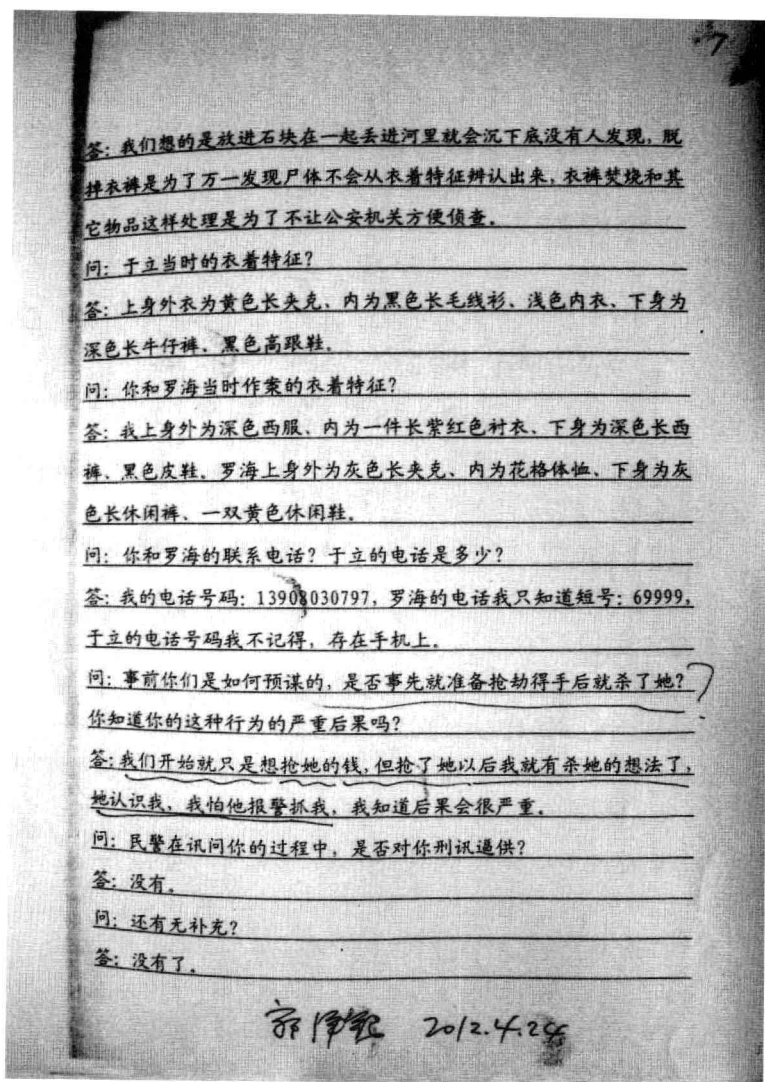 7
答：我们想的是放进石块在一起丢进河里就会沉下底没有人发现，脱
掉衣裤是为了万一发现尸体不会从衣着特征辨认出来，衣裤焚烧和其
它物品这样处理是为了不让公安机关方便侦查。
问：于立当时的衣着特征？
答：上身外衣为黄色长夹克、内为黑色长毛线衫、浅色内衣、下身为
深色长牛仔裤、黑色高跟鞋。
问：你和罗海当时作案的衣着特征？
答：我上身外为深色西服、内为一件长紫红色衬衣、下身为深色长西
裤、黑色皮鞋。罗海上身外为灰色长夹克、内为花格体恤、下身为灰
色长休闲裤、一双黄色休闲鞋。
问：你和罗海的联系电话？于立的电话是多少？
答：我的电话号码：13908030797，罗海的电话我只知道短号：69999，
于立的电话号码我不记得，存在手机上。
问：事前你们是如何预谋的，是否事先就准备抢劫得手后就杀了她？
你知道你的这种行为的严重后果吗？
答：我们开始就只是想抢她的钱，但抢了她以后我就有杀她的想法了，
她认识我，我怕他报警抓我，我知道后果会很严重。
问：民警在讯问你的过程中，是否对你刑讯逼供？
答：没有。
问：还有无补充？
答：没有了。
2012.4.24